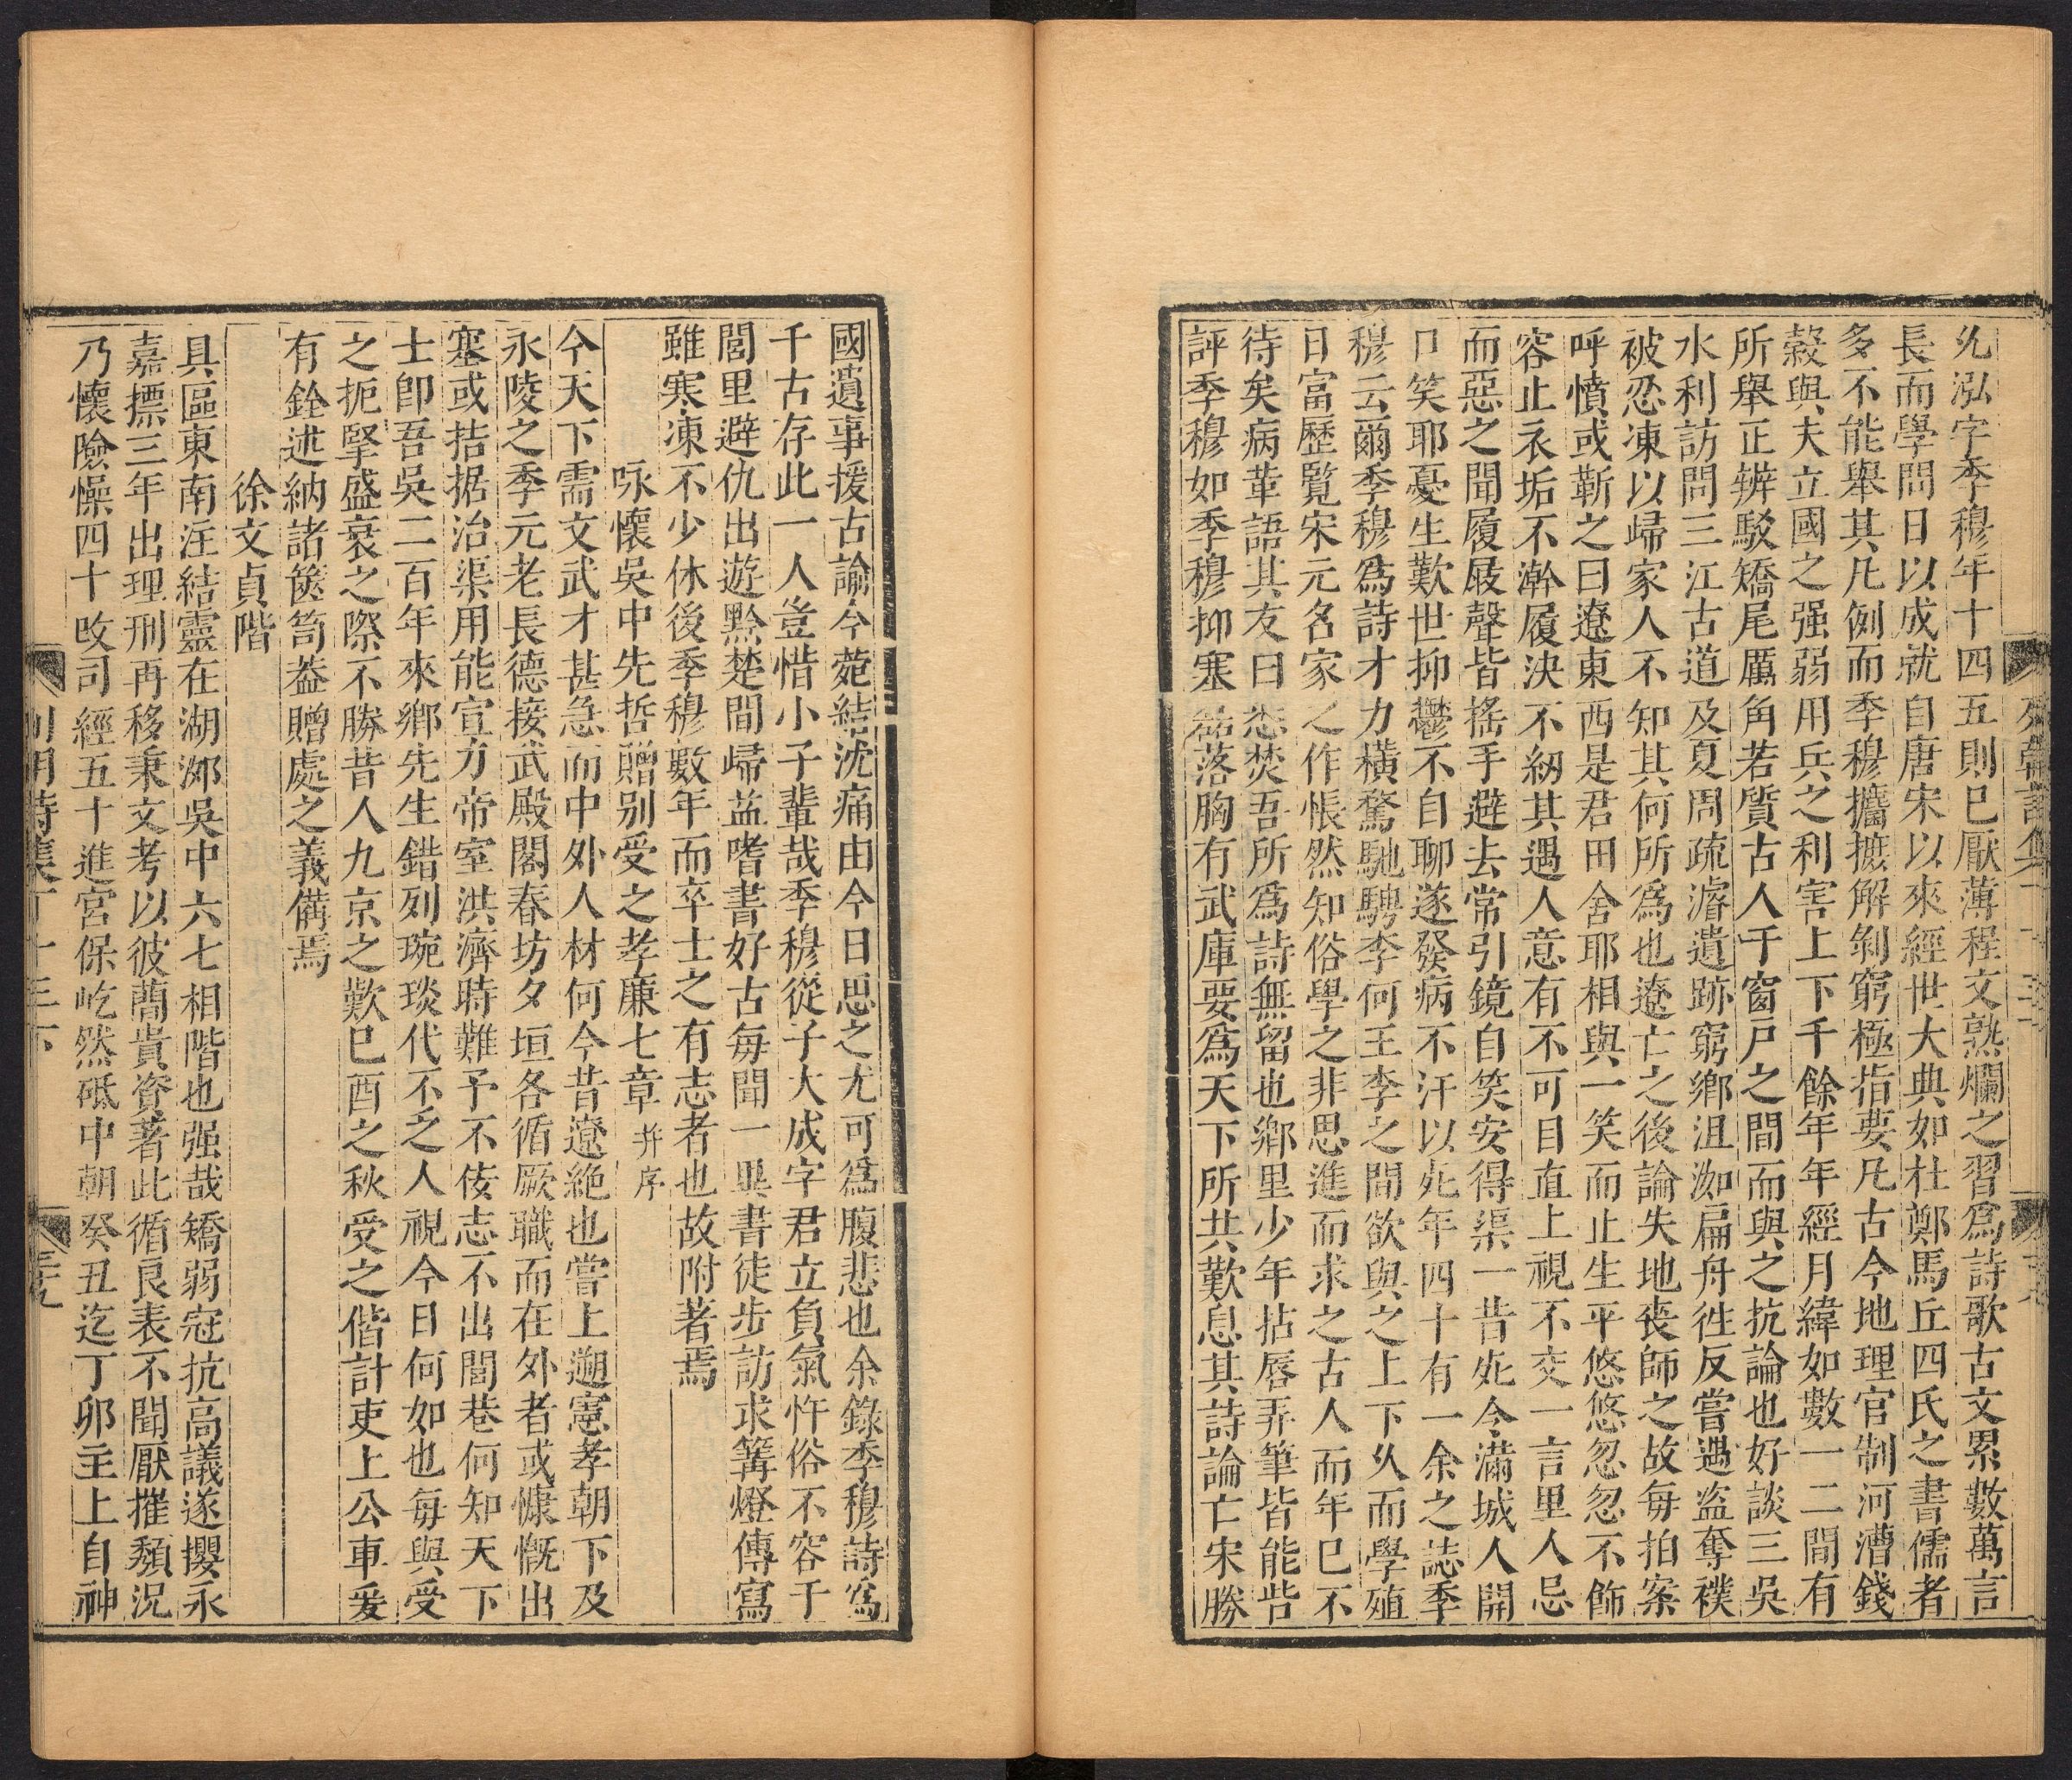 允泓字季穆年十四五則已厭薄程文熟爛之習爲詩歌古文累數萬言
長而學問日以成就自唐宋以來經世大典如杜鄭馬丘四氏之書儒者
多不能舉其凡例而季穆攟摭解剝窮極指要凡古今地理官制河漕錢
穀與夫立國之强弱用兵之利害上下千餘年年經月緯如數一二間有
所舉正辨駁矯尾厲角若質古人于窗戸之間而與之抗論也好談三吳
水利訪問三江古道及夏周疏濬遺跡窮鄉沮洳扁舟徃反嘗遇盗奪襆
被忍凍以歸家人不知其何所爲也遼亡之後論失地喪師之故每拍案
呼憤或靳之曰遼東西是君田舍耶相與一笑而止生平悠悠忽忽不飾
容止衣垢不澣履決不紉其遇人意有不可目直上視不交一言里人忌
而惡之聞履屐聲皆搖手避去常引鏡自笑安得渠一昔死今滿城人開
口笑耶憂生歎世抑鬱不自聊遂發病不汗以死年四十有一余之誌季
穆云爾季穆爲詩才力橫騖馳騁李何王李之間欲與之上下久而學殖
日富歷覽宋元名家之作悵然知俗學之非思進而求之古人而年已不
待矣病革語其友曰悉焚吾所爲詩無留也鄉里少年拈唇弄筆皆能呰
評季穆如季穆抑塞磊落胸有武庫要爲天下所共歎息其詩論亡宋勝
國遺事援古諭今菀結沈痛由今日思之尤可爲腹悲也余錄季穆詩爲
千古存此一人豈惜小子輩哉季穆從子大成字君立負氣忤俗不容于
閭里避仇出遊黔楚間歸益嗜書好古每聞一異書徒步訪求篝燈傳寫
雖寒凍不少休後季穆數年而卒士之有志者也故附著焉
咏懷吳中先哲贈别受之孝廉七章并序
今天下需文武才甚急而中外人材何今昔遼絶也嘗上遡憲孝朝下及
永陵之季元老長德接武殿閣春坊夕垣各循厥職而在外者或慷慨出
塞或拮据治渠用能宣力帝室洪濟時難予不佞志不出閭巷何知天下
士卽吾吳二百年來鄉先生錯列琬琰代不乏人視今日何如也每與受
之扼掔盛衰之際不勝昔人九京之歎已酉之秋受之偕計吏上公車爰
有銓述納諸篋笥葢贈處之義備焉
徐文貞階
具區東南注結靈在湖泖吳中六七相階也强哉矯弱冠抗高議遂攖永
嘉摽三年出理刑再移秉文考以彼藺貴資著此循良表不聞厭摧頽況
乃懷險懆四十改司經五十進宮保屹然砥中朝癸丑迄丁卯主上自神
列朝詩集丁十三下
三十九